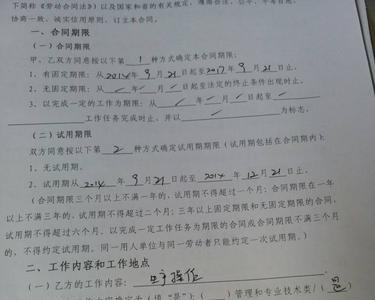 下简称《劳动合同法》) 以及国家和省的有关规定, 遵循合法、公平、平等自愿、
协商一致、诚实信用原则, 订立本合同。
一、合同期限
(一) 合同期限
甲、乙双方同意按以下第 1 种方式确定本合同期限:
1、有固定期限: 从 2014 年 9 月 21 日起至 2017 年 9 月 21 日止。
2、无固定期限: 从 / 年 / 月 / 日起至法定的终止条件出现时止。
3、以完成一定的工作为期限: 从 / 年 / 月 / 日起至
工作任务完成时止。并以 为标志。
(二) 试用期限
双方同意按以下第 2 种方式确定试用期期限 (试用期包括在合同期内):
1、无试用期。
2、试用期从 2014 年 9 月 21 日起至 2014 年 12 月 21 日止。
(合同期限三个月以上不满一年的, 试用期不得超过一个月; 合同期限在一年
以上不满三年的, 试用期不得超过二个月; 三年以上固定期限和无固定期限的合同,
试用期不得超过六个月。以完成一定工作任务为期限的合同或合同期限不满三个月
的, 不得约定试用期。同一用人单位与同一劳动者只能约定一次试用期。)
二、工作内容和工作地点
(一) 乙方的工作内容:
(填 "是") ( ) 管理和专业技术类/ ( 是 )